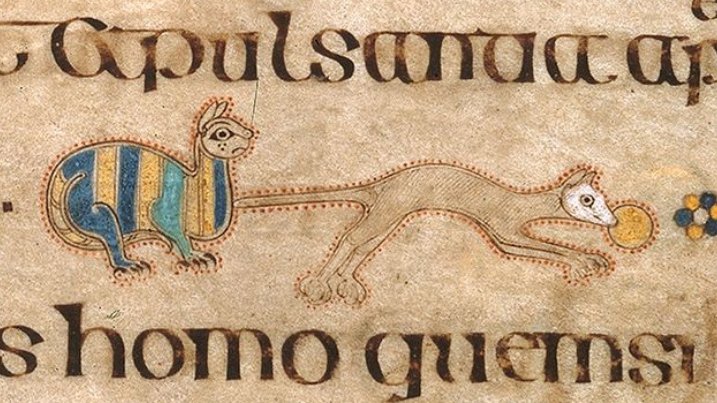 et pulsanti ap
s homo quemsi